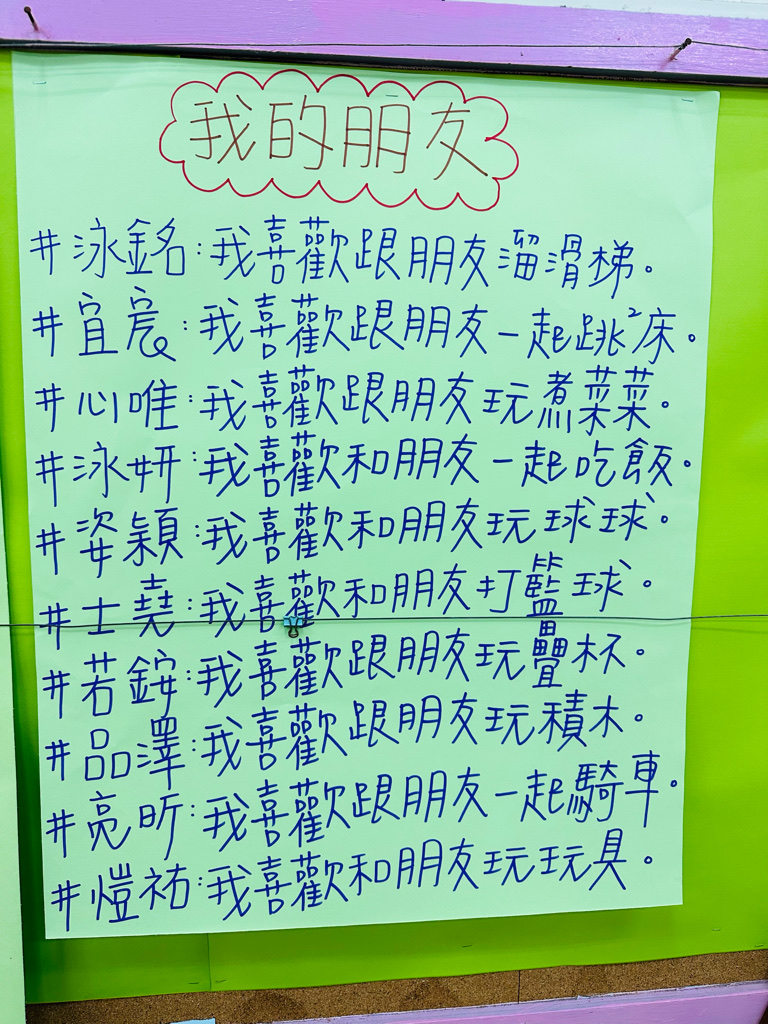 我的朋友
#泳銘:我喜歡跟朋友溜滑梯。
#宜宸:我喜歡跟朋友一起跳²床。
#心唯:我喜歡跟朋友玩煮菜菜。
#泳妍:我喜歡和朋友一起吃飯。
#姿穎:我喜歡和朋友玩球球。
#士堯:我喜歡和朋友打籃球。
#若銨:我喜歡跟朋友玩疊杯。
#品澤:我喜歡跟朋友玩積木。
#亮昕:我喜歡跟朋友一起騎車。
#愷祐:我喜歡和朋友玩玩具。